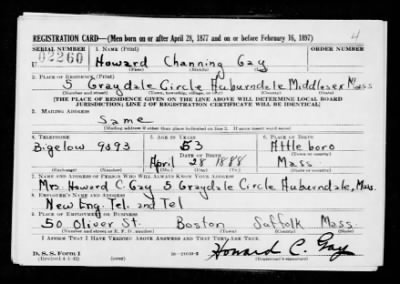 REGISTRATION CARD—(Men born on or after April 28, 1877 and on or before February 16, 1897)
4
SERIAL NUMBER 1. NAME (Print) ORDER NUMBER
02260 Howard Channing Gay
(First) (Middle) (Last)
2. PLACE OF RESIDENCE (Print)
5 Graydale Circle Auburndale Middlesex Mass
(Number and street) (Town, township, village, or city) (County) (State)
[THE PLACE OF RESIDENCE GIVEN ON THE LINE ABOVE WILL DETERMINE LOCAL BOARD
JURISDICTION; LINE 2 OF REGISTRATION CERTIFICATE WILL BE IDENTICAL]
3. MAILING ADDRESS
Same
[Mailing address if other than place indicated on line 2. If same insert word same]
4. TELEPHONE 5. AGE IN YEARS 6. PLACE OF BIRTH
53 Attleboro
DATE OF BIRTH (Town or county)
Bigelow 9393 April 28 1888 Mass
(Exchange) (Number) (Mo.) (Day) (Yr.) (State or country)
7. NAME AND ADDRESS OF PERSON WHO WILL ALWAYS KNOW YOUR ADDRESS
Mrs. Howard C. Gay 5 Graydale Circle Auburndale, Mass.
8. EMPLOYER'S NAME AND ADDRESS
New Eng. Tel. and Tel
9. PLACE OF EMPLOYMENT OR BUSINESS
50 Oliver St. Boston Suffolk Mass
(Number and street or R. F. D. number) (Town) (County) (State)
I AFFIRM THAT I HAVE VERIFIED ABOVE ANSWERS AND THAT THEY ARE TRUE.
D. S. S. Form 1
(Revised 4-1-42) (over) Howard C. Gay